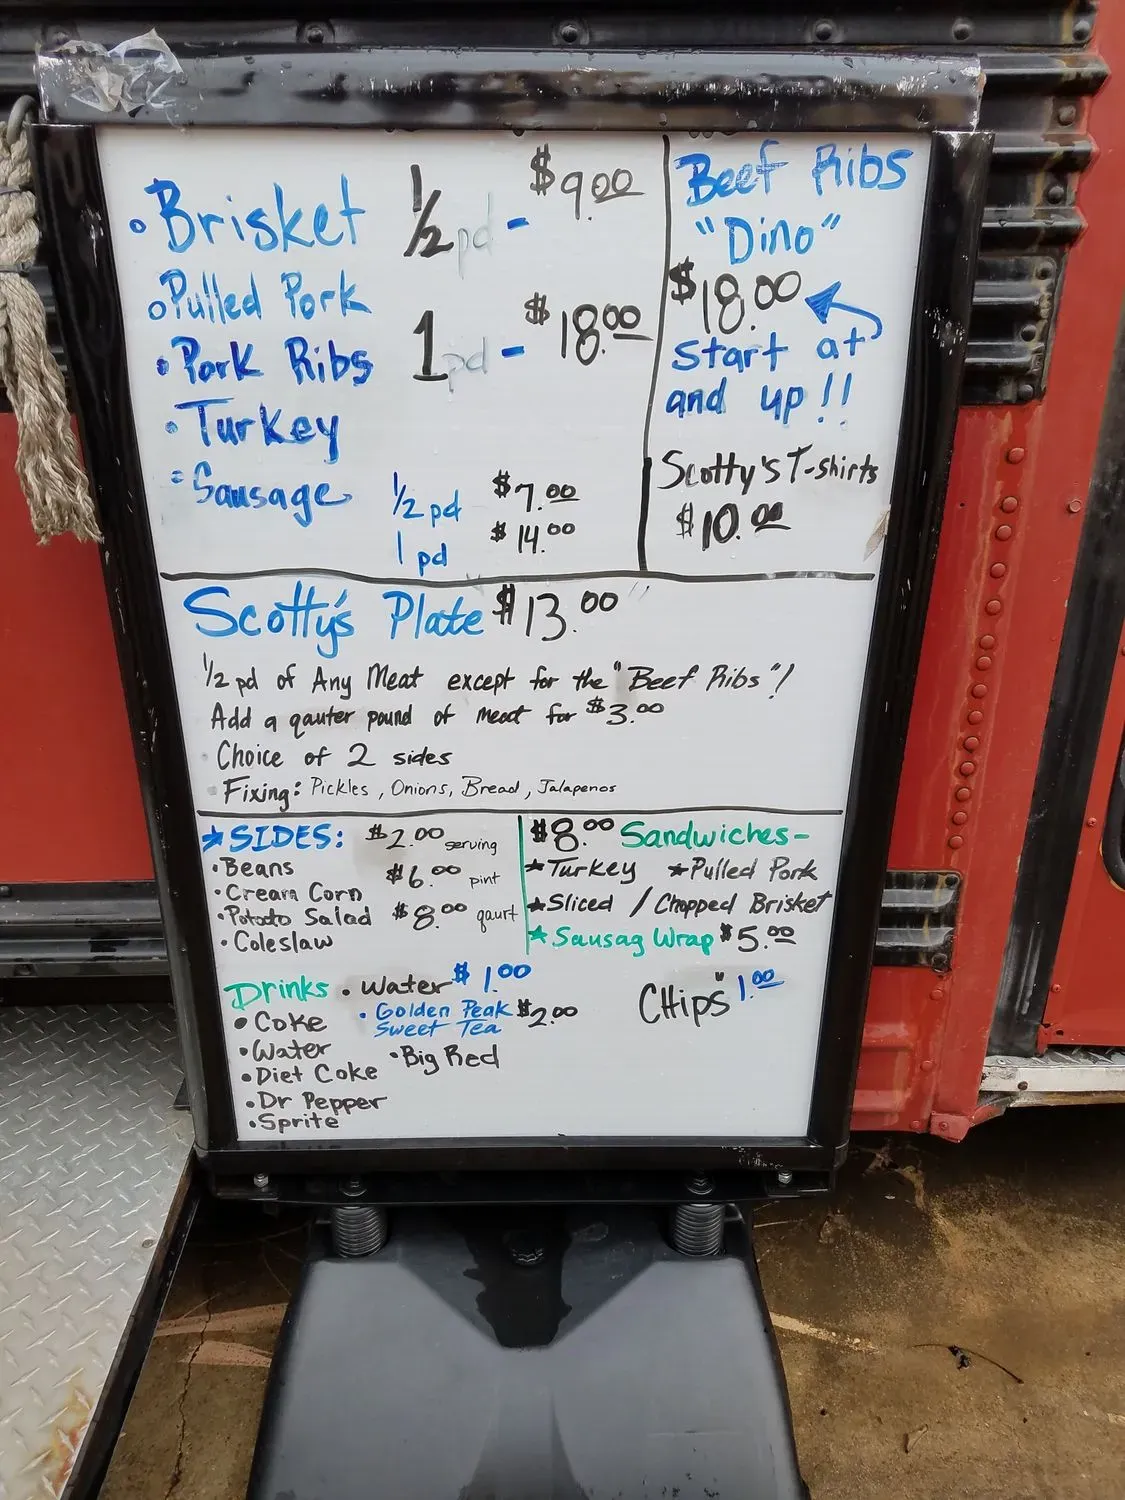 Brisket 1/2 pd - $9.00
Pulled Pork
Pork Ribs 1 pd - $18.00
Turkey
Sausage 1/2 pd $7.00
1 pd $14.00
Beef Ribs
"Dino"
$18.00
Start at
and up!!
Scotty's T-shirts
$10.00
Scotty's Plate $13.00
1/2 pd of Any Meat except for the "Beef Ribs"!
Add a qauter pound of meat for $3.00
Choice of 2 sides
Fixing: Pickles, Onions, Bread, Jalapenos
★SIDES: $2.00 serving
• Beans $6.00 pint
• Cream Corn
• Potato Salad $8.00 qaurt
• Coleslaw
$8.00 Sandwiches-
★Turkey ★Pulled Pork
★Sliced / Chopped Brisket
★Sausag Wrap $5.00
Drinks • Water $1.00
• Coke • Golden Peak $2.00
Sweet Tea
• Water • Big Red
• Diet Coke
• Dr Pepper
• Sprite
CHips" 1.00